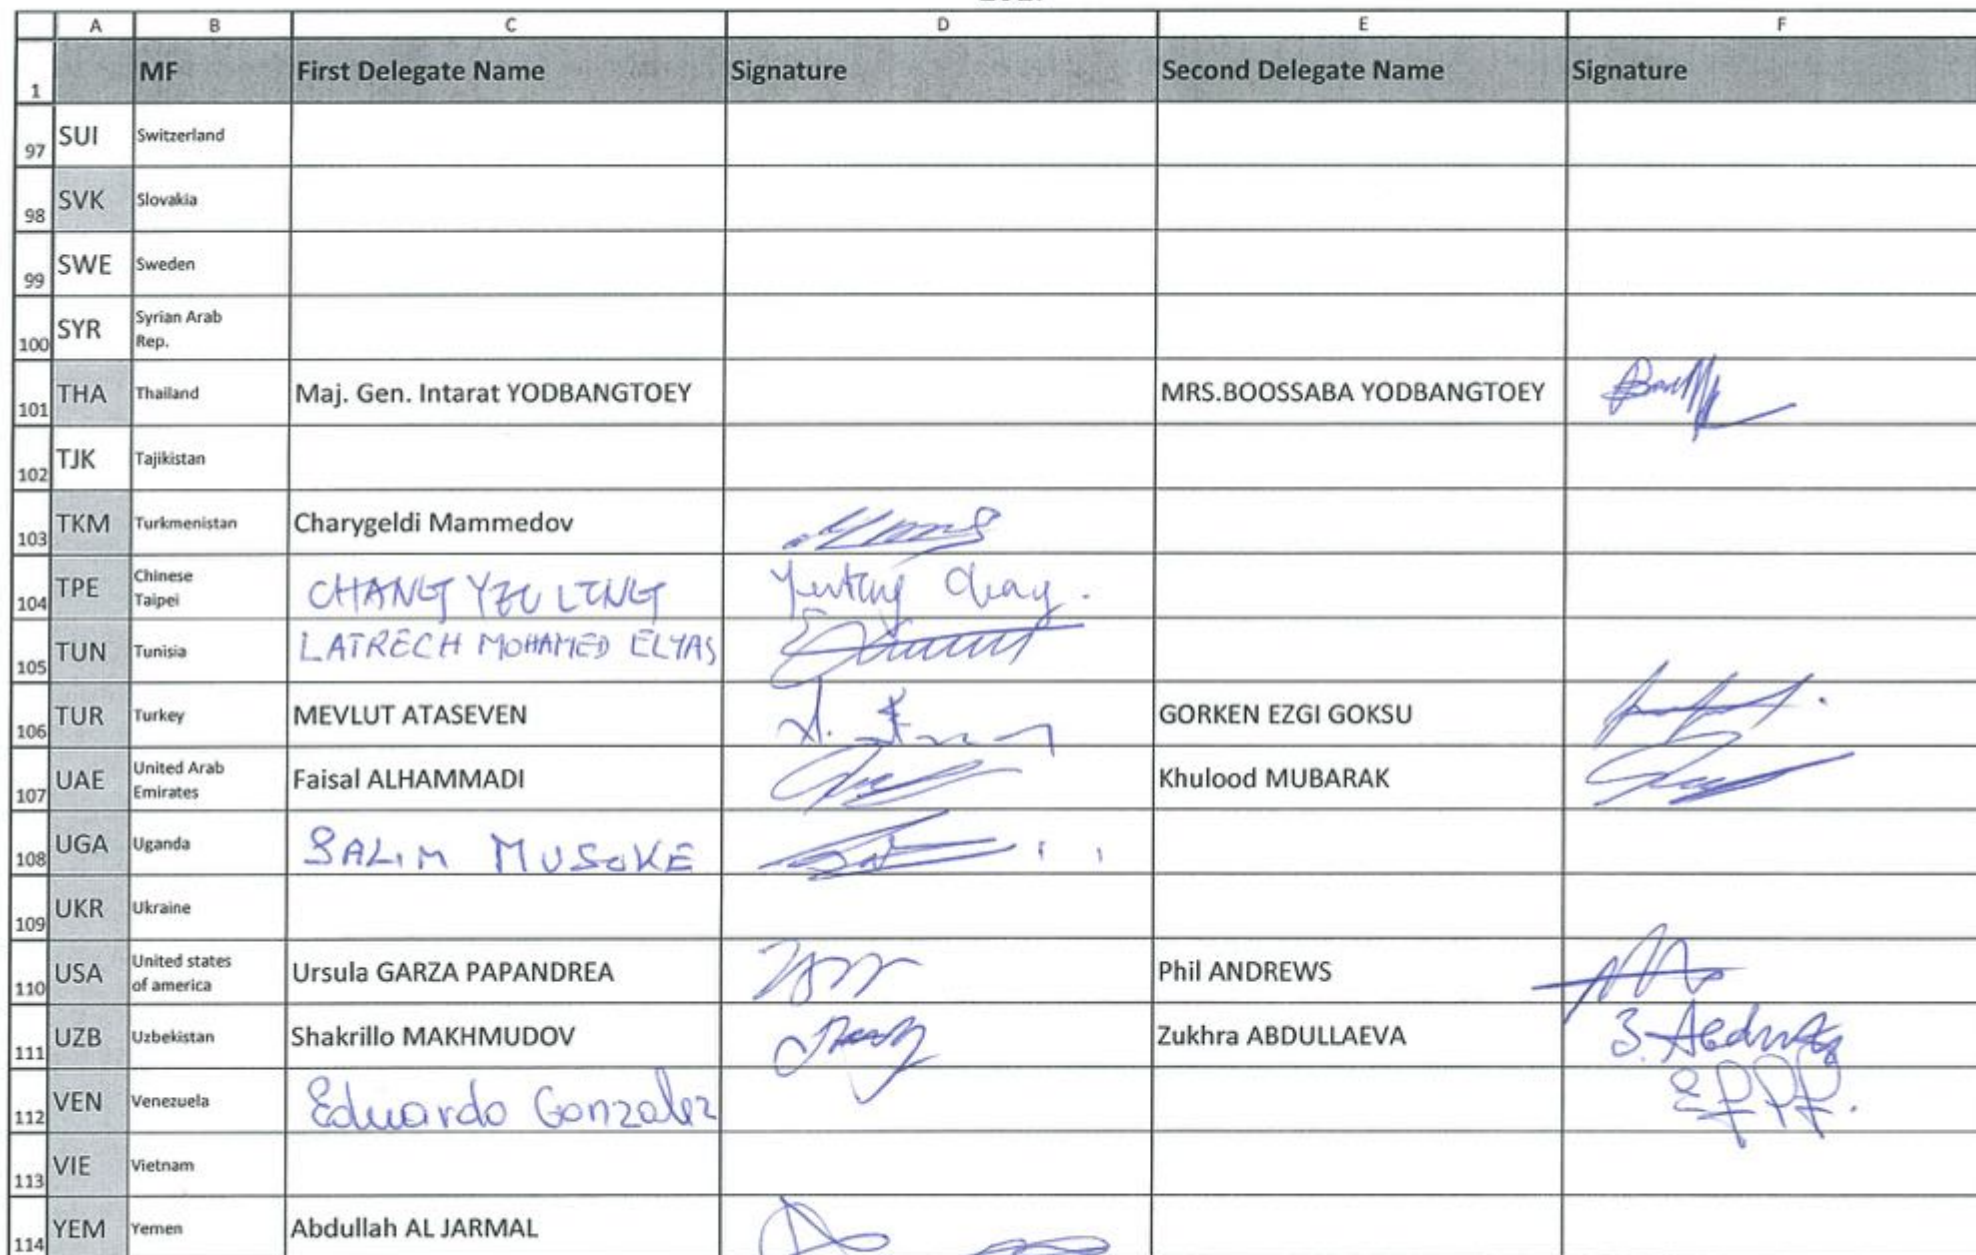 A B C D E F
1 MF First Delegate Name Signature Second Delegate Name Signature
97 SUI Switzerland
98 SVK Slovakia
99 SWE Sweden
100 SYR Syrian Arab
Rep.
101 THA Thailand Maj. Gen. Intarat YODBANGTOEY MRS.BOOSSABA YODBANGTOEY
102 TJK Tajikistan
103 TKM Turkmenistan Charygeldi Mammedov
104 TPE Chinese
Taipei CHANG YZU LING
105 TUN Tunisia LATRECH MOHAMED ELYAS
106 TUR Turkey MEVLUT ATASEVEN GORKEN EZGI GOKSU
107 UAE United Arab
Emirates Faisal ALHAMMADI Khulood MUBARAK
108 UGA Uganda SALIM MUSOKE
109 UKR Ukraine
110 USA United states
of america Ursula GARZA PAPANDREA Phil ANDREWS
111 UZB Uzbekistan Shakrillo MAKHMUDOV Zukhra ABDULLAEVA
112 VEN Venezuela Eduardo Gonzalez
113 VIE Vietnam
114 YEM Yemen Abdullah AL JARMAL